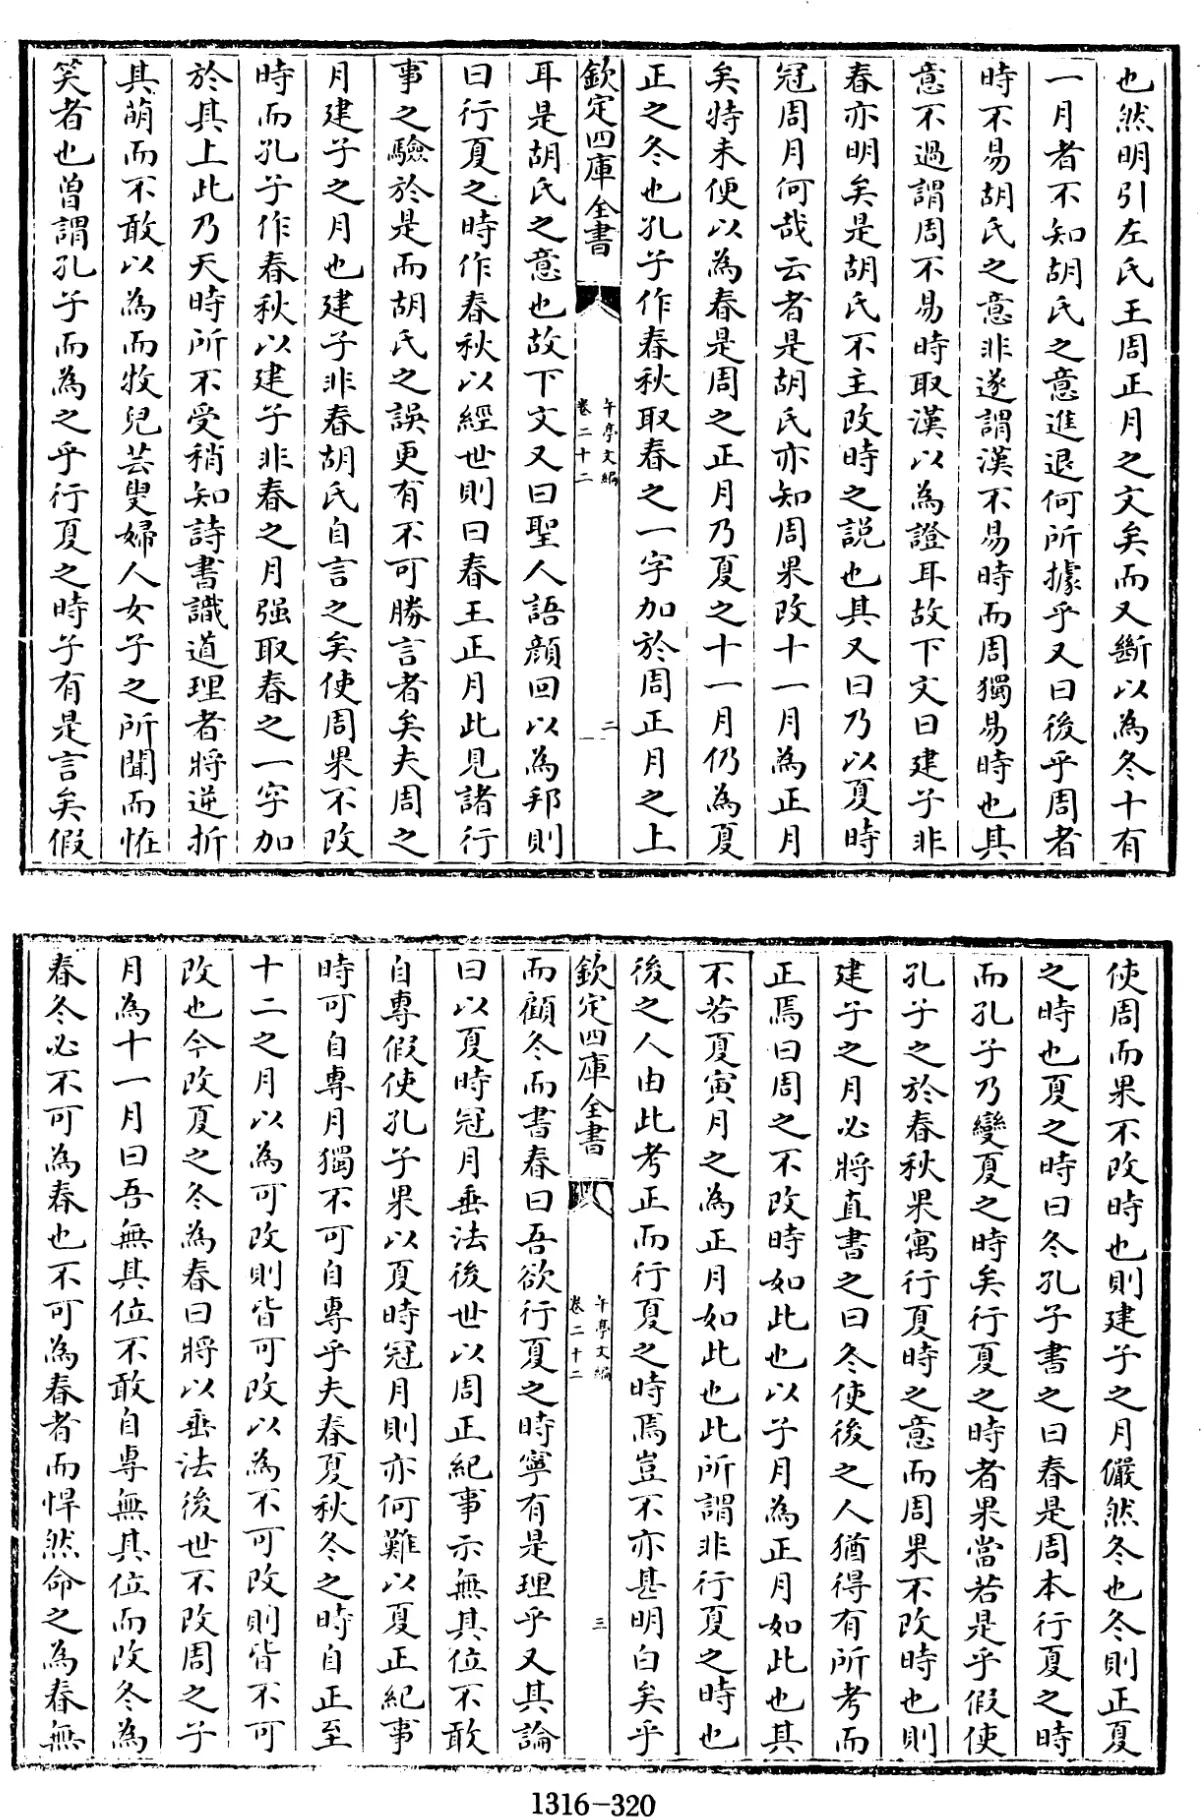 也然明引左氏王周正月之文矣而又斷以為冬十有
一月者不知胡氏之意進退何所據乎又曰後乎周者
時不易胡氏之意非遂謂漢不易時而周獨易時也其
意不過謂周不易時取漢以為證耳故下文曰建子非
春亦明矣是胡氏不主改時之說也其又曰乃以夏時
冠周月何哉云者是胡氏亦知周果改十一月為正月
矣特未便以為春是周之正月乃夏之十一月仍為夏
正之冬也孔子作春秋取春之一字加於周正月之上
欽定四庫全書
午亭文編
卷二十二
二
耳是胡氏之意也故下文又曰聖人語顔回以為邦則
曰行夏之時作春秋以經世則曰春王正月此見諸行
事之驗於是而胡氏之誤更有不可勝言者矣夫周之
月建子之月也建子非春胡氏自言之矣使周果不改
時而孔子作春秋以建子非春之月强取春之一字加
於其上此乃天時所不受稍知詩書識道理者將逆折
其萌而不敢以為而牧兒芸叟婦人女子之所聞而恠
笑者也曾謂孔子而為之乎行夏之時子有是言矣假
使周而果不改時也則建子之月儼然冬也冬則正夏
之時也夏之時曰冬孔子書之曰春是周本行夏之時
而孔子乃變夏之時矣行夏之時者果當若是乎假使
孔子之於春秋果寓行夏時之意而周果不改時也則
建子之月必將直書之曰冬使後之人猶得有所考而
正焉曰周之不改時如此也以子月為正月如此也其
不若夏寅月之為正月如此也此所謂非行夏之時也
後之人由此考正而行夏之時焉豈不亦甚明白矣乎
欽定四庫全書
午亭文編
卷二十二
三
而顧冬而書春曰吾欲行夏之時寧有是理乎又其論
曰以夏時冠月垂法後世以周正紀事示無其位不敢
自專假使孔子果以夏時冠月則亦何難以夏正紀事
時可自專月獨不可自專乎夫春夏秋冬之時自正至
十二之月以為可改則皆可改以為不可改則皆不可
改也今改夏之冬為春曰將以垂法後世不改周之子
月為十一月曰吾無其位不敢自專無其位而改冬為
春冬必不可為春也不可為春者而悍然命之為春無
1316-320